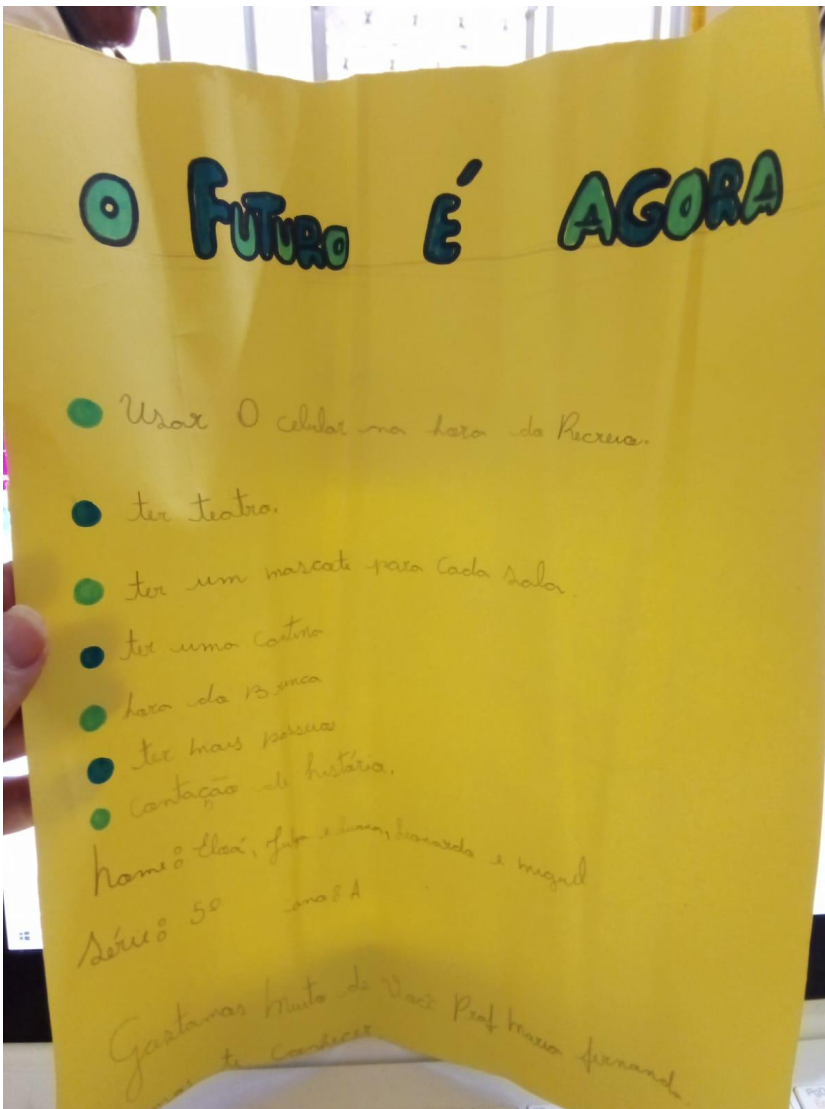 O FUTURO É AGORA
Usar O celular na hora do Recreio.
ter teatro.
ter um mascote para Cada sala.
ter uma cantina
hora da Brinca
ter mais pessoas
contação de história.
home: Eloá, e Luana, Leonardo e miguel
Série: 5º ano: A
Gostamos muito de Você Prof Maria fernanda.
te conhecer